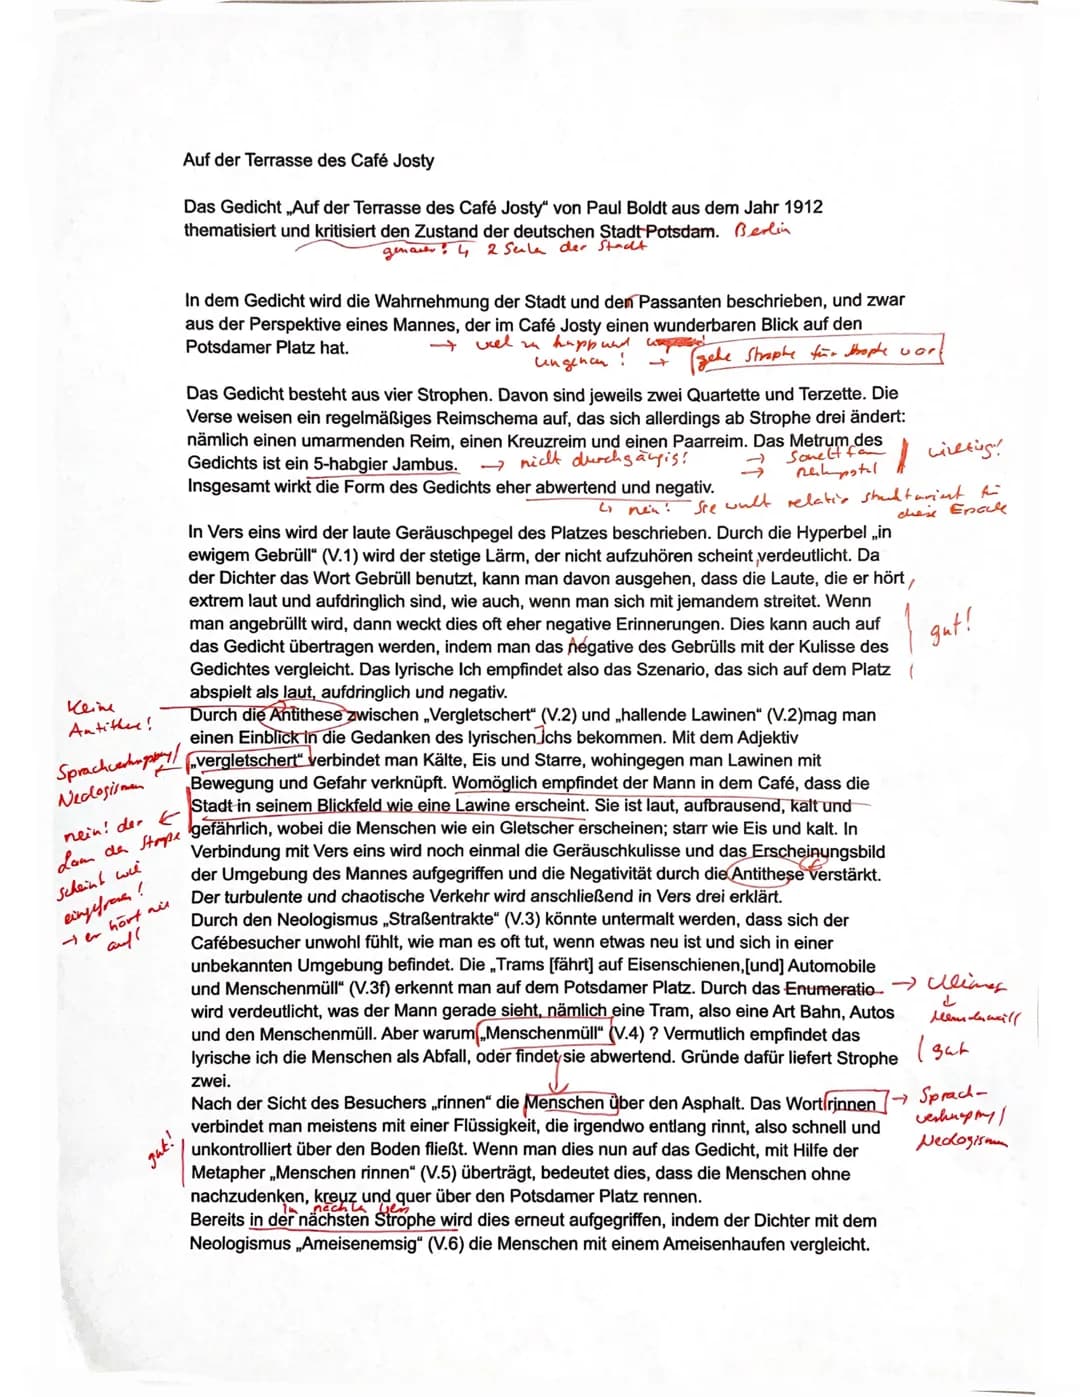 Auf der Terrasse des Café Josty
Das Gedicht „Auf der Terrasse des Café Josty" von Paul Boldt aus dem Jahr 1912
thematisiert und kritisiert den Zustand der deutschen Stadt Potsdam. Berlin
genauer! 2 Seite der Stadt
In dem Gedicht wird die Wahrnehmung der Stadt und den Passanten beschrieben, und zwar
aus der Perspektive eines Mannes, der im Café Josty einen wunderbaren Blick auf den
Potsdamer Platz hat. → viel zu knapp und
ungenau! → gehe Strophe für Strophe vor!
Das Gedicht besteht aus vier Strophen. Davon sind jeweils zwei Quartette und Terzette. Die
Verse weisen ein regelmäßiges Reimschema auf, das sich allerdings ab Strophe drei ändert:
nämlich einen umarmenden Reim, einen Kreuzreim und einen Paarreim. Das Metrum des
Gedichts ist ein 5-habgier Jambus. → nicht durchgängig! → Sonettform → wichtig!
Insgesamt wirkt die Form des Gedichts eher abwertend und negativ.
nein! Sie wirkt relativ strukturiert für
diese Epoche
In Vers eins wird der laute Geräuschpegel des Platzes beschrieben. Durch die Hyperbel „in
ewigem Gebrüll" (V.1) wird der stetige Lärm, der nicht aufzuhören scheint verdeutlicht. Da
der Dichter das Wort Gebrüll benutzt, kann man davon ausgehen, dass die Laute, die er hört,
extrem laut und aufdringlich sind, wie auch, wenn man sich mit jemandem streitet. Wenn
man angebrüllt wird, dann weckt dies oft eher negative Erinnerungen. Dies kann auch auf
gut!
das Gedicht übertragen werden, indem man das Negative des Gebrülls mit der Kulisse des
Gedichtes vergleicht. Das lyrische Ich empfindet also das Szenario, das sich auf dem Platz
abspielt als laut, aufdringlich und negativ.
Keine
Antithese!
Durch die Antithese zwischen „Vergletschert" (V.2) und „hallende Lawinen" (V.2)mag man
einen Einblick in die Gedanken des lyrischen Ichs bekommen. Mit dem Adjektiv
Sprachverknappung/
Neologismen
„vergletschert" verbindet man Kälte, Eis und Starre, wohingegen man Lawinen mit
Bewegung und Gefahr verknüpft. Womöglich empfindet der Mann in dem Café, dass die
Stadt in seinem Blickfeld wie eine Lawine erscheint. Sie ist laut, aufbrausend, kalt und
nein! der
Lärm der Straße
scheint wie
eingefroren!
→ er hört nie
auf!
gefährlich, wobei die Menschen wie ein Gletscher erscheinen; starr wie Eis und kalt. In
Verbindung mit Vers eins wird noch einmal die Geräuschkulisse und das Erscheinungsbild
der Umgebung des Mannes aufgegriffen und die Negativität durch die Antithese verstärkt.
Der turbulente und chaotische Verkehr wird anschließend in Vers drei erklärt.
Durch den Neologismus „Straßentrakte" (V.3) könnte untermalt werden, dass sich der
Cafébesucher unwohl fühlt, wie man es oft tut, wenn etwas neu ist und sich in einer
unbekannten Umgebung befindet. Die „Trams [fährt] auf Eisenschienen,[und] Automobile
und Menschenmüll" (V.3f) erkennt man auf dem Potsdamer Platz. Durch das Enumeratio → Klimax
↓
Menschenmüll
wird verdeutlicht, was der Mann gerade sieht, nämlich eine Tram, also eine Art Bahn, Autos
und den Menschenmüll. Aber warum „Menschenmüll" (V.4) ? Vermutlich empfindet das
lyrische ich die Menschen als Abfall, oder findet sie abwertend. Gründe dafür liefert Strophe
gut
zwei.
Nach der Sicht des Besuchers „rinnen" die Menschen über den Asphalt. Das Wort rinnen → Sprach-
verknappung/
Neologismen
verbindet man meistens mit einer Flüssigkeit, die irgendwo entlang rinnt, also schnell und
gut!
unkontrolliert über den Boden fließt. Wenn man dies nun auf das Gedicht, mit Hilfe der
Metapher „Menschen rinnen" (V.5) überträgt, bedeutet dies, dass die Menschen ohne
nachzudenken, kreuz und quer über den Potsdamer Platz rennen.
Im nächsten Vers
Bereits in der nächsten Strophe wird dies erneut aufgegriffen, indem der Dichter mit dem
Neologismus „Ameisenemsig" (V.6) die Menschen mit einem Ameisenhaufen vergleicht.